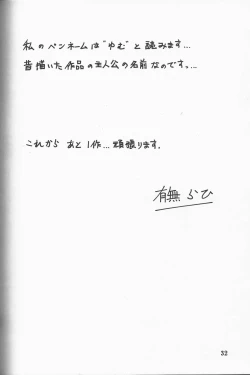 私のペンネームは“やむ”と読みます…
昔描いた作品の主人公の名前なのです。…
これから あと1作…頑張ります。
有無らひ
32